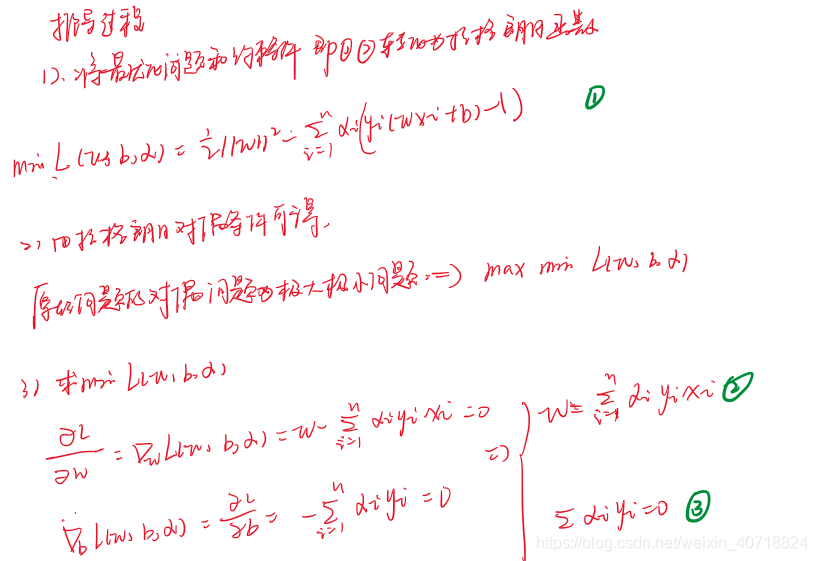 推导过程
1)、将最优化问题和约束条件 即①②转化为拉格朗日函数
min L(w,b,α) = 1/2||w||² - Σ_{i=1}^{n} αi(yi(wxi+b)-1) ①
2)由拉格朗日对偶条件可得,
原始问题的对偶问题为极大极小问题:=> max min L(w,b,α)
3) 求min L(w,b,α)
∂L/∂w = ∇w L(w,b,α) = w - Σ_{i=1}^{n} αi yi xi = 0 => w = Σ_{i=1}^{n} αi yi xi ②
∇b L(w,b,α) = ∂L/∂b = -Σ_{i=1}^{n} αi yi = 0 Σ αi yi = 0 ③
https://blog.csdn.net/weixin_40718824